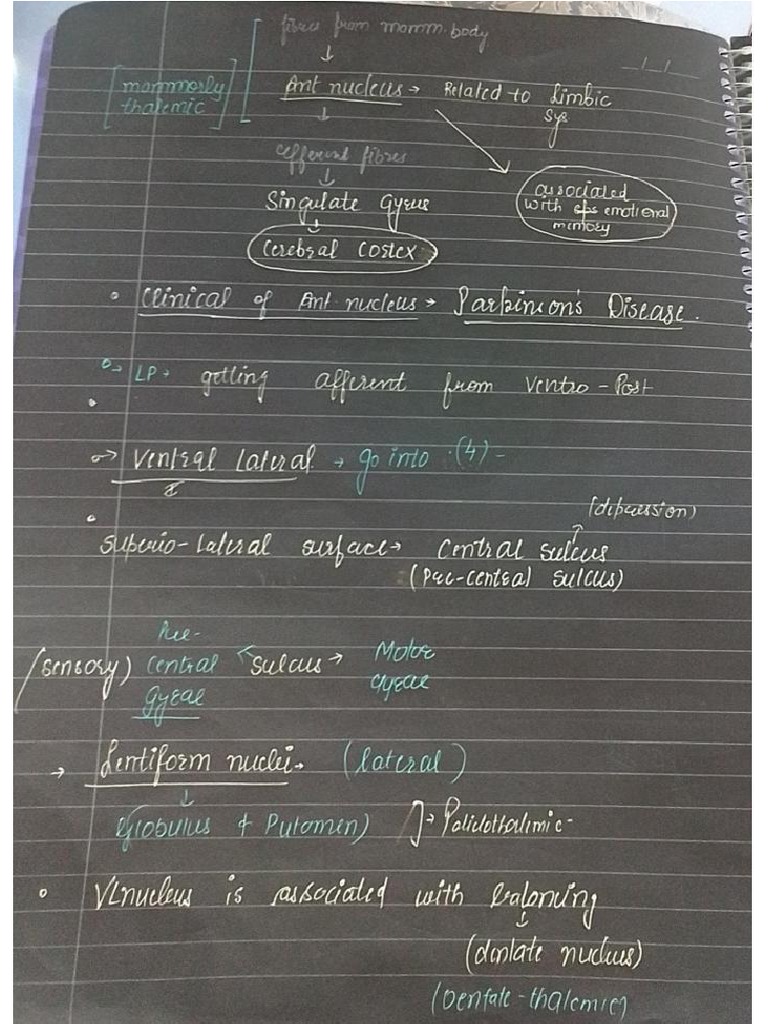 fibres from mamm. body
↓
[mammorly thalemic] [ Ant nucleus → Related to limbic sys
↓
efferent fibres
↓
Singulate Gyrus
↓
Cerebral cortex
associated
with emotional
memory
• Clinical of Ant. nucleus → Parkinson's Disease.
→ LP → getting afferent from ventro-Post
→ Ventral Lateral → go into (4) -
(depression)
Superio-Lateral surface → Central sulcus
(Pre-central sulcus)
(sensory) Pre-central gyrae ← sulcus → Motor gyrae
→ Lentiform nuclei → (lateral)
↓
(Globulus + Putomen) ] →
• VL nucleus is associated with Balancing
↓
(dentate nucleus)
(Dentate-thalemic)